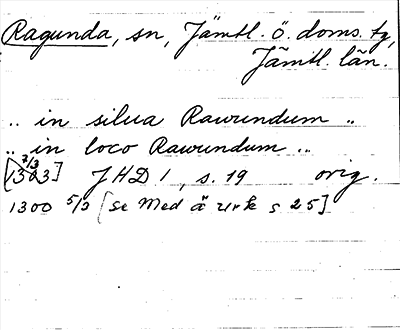 Ragunda, sn, Jämtl. ö. doms. tg,
Jämtl. län.
.. in silua Rawundum ..
.. in loco Rawundum ...
7/3
[1303] JHD 1, s. 19 orig.
1300 5/3 [se Med ä Urk s 25]